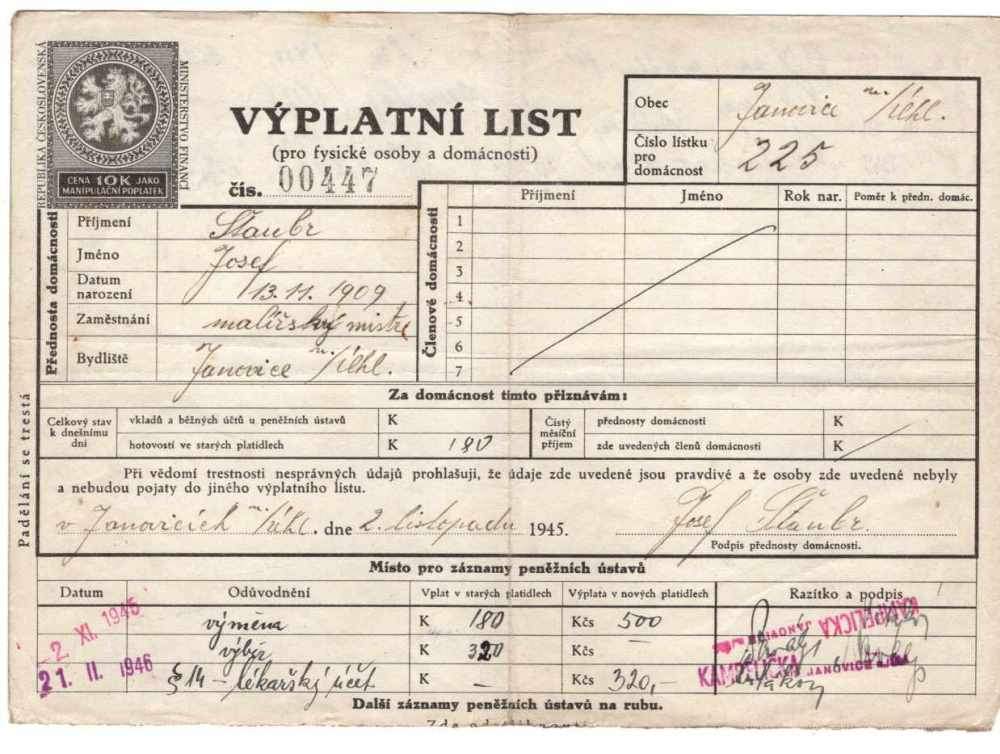 REPUBLIKA ČESKOSLOVENSKÁ
MINISTERSTVO FINANCÍ
CENA 10K JAKO
MANIPULAČNÍ POPLATEK
VÝPLATNÍ LIST
(pro fysické osoby a domácnosti)
čís. 00447
Obec Janovice n./Úhl.
Číslo lístku pro domácnost 225
Přednosta domácnosti
Příjmení Štaubr
Jméno Josef
Datum narození 13.11.1909
Zaměstnání malířský mistr
Bydliště Janovice n./Úhl.
Členové domácnosti
Příjmení Jméno Rok nar. Poměr k předn. domác.
1
2
3
4
5
6
7
Za domácnost tímto přiznávám:
Celkový stav k dnešnímu dni
vkladů a běžných účtů u peněžních ústavů K
hotovostí ve starých platidlech K 180
Čistý měsíční příjem
přednosty domácnosti K
zde uvedených členů domácnosti K
Při vědomí trestnosti nesprávných údajů prohlašuji, že údaje zde uvedené jsou pravdivé a že osoby zde uvedené nebyly
a nebudou pojaty do jiného výplatního listu.
v Janovicích n./Úhl. dne 2. listopadu 1945. Josef Štaubr
Podpis přednosty domácnosti.
Padělání se trestá
Místo pro záznamy peněžních ústavů
Datum Odůvodnění Vplat v starých platidlech Výplata v nových platidlech Razítko a podpis
-2 XI. 1945 výměna K 180 Kčs 500
výběr K 320 Kčs
21. II. 1946 § 14 – lékařský účet K – Kčs 320,-
KAMPELICKA
JANOVICE
KAMPELICKA
Další záznamy peněžních ústavů na rubu.